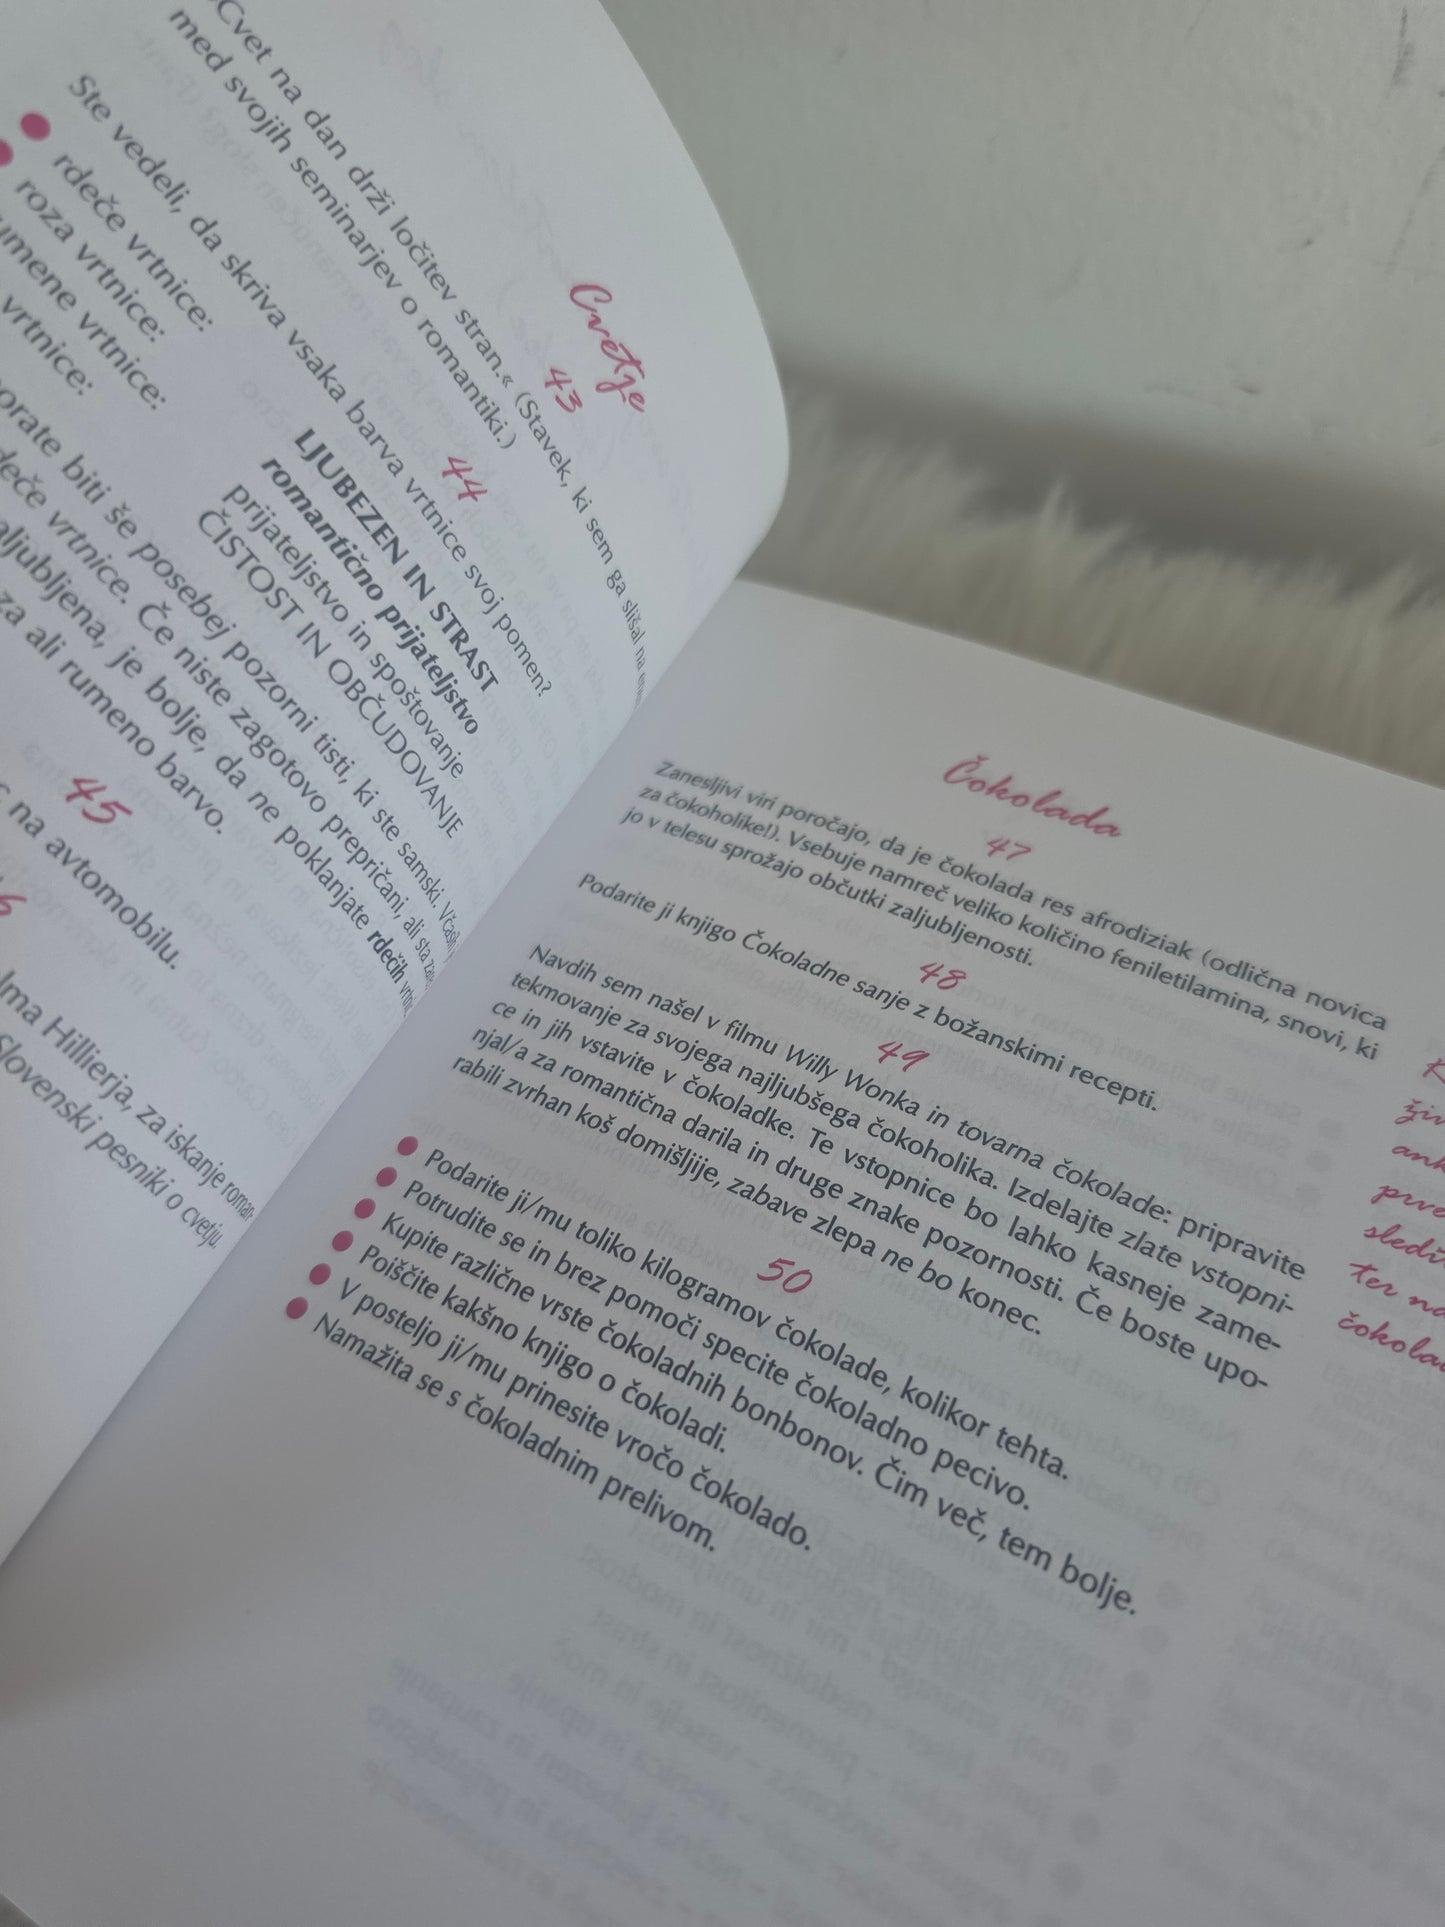 Cvetje
43
Cvet na dan drži ločitev stran.« (Stavek, ki sem ga slišal na
med svojih seminarjev o romantiki.)
44
Ste vedeli, da skriva vsaka barva vrtnice svoj pomen?
rdeče vrtnice: LJUBEZEN IN STRAST
roza vrtnice: romantično prijateljstvo
umene vrtnice: prijateljstvo in spoštovanje
vrtnice: ČISTOST IN OBČUDOVANJE
orate biti še posebej pozorni tisti, ki ste samski. Včasih
deče vrtnice. Če niste zagotovo prepričani, ali sta
aljubljena, je bolje, da ne poklanjate rdečih
za ali rumeno barvo.
45
na avtomobilu.
6
lma Hillierja, za iskanje roman-
Slovenski pesniki o cvetju.
Čokolada
47
Zanesljivi viri poročajo, da je čokolada res afrodiziak (odlična novica
za čokoholike!). Vsebuje namreč veliko količino feniletilamina, snovi, ki
jo v telesu sprožajo občutki zaljubljenosti.
48
Podarite ji knjigo Čokoladne sanje z božanskimi recepti.
49
Navdih sem našel v filmu Willy Wonka in tovarna čokolade: pripravite
tekmovanje za svojega najljubšega čokoholika. Izdelajte zlate vstopni-
ce in jih vstavite v čokoladke. Te vstopnice bo lahko kasneje zame-
njal/a za romantična darila in druge znake pozornosti. Če boste upo-
rabili zvrhan koš domišljije, zabave zlepa ne bo konec.
50
Podarite ji/mu toliko kilogramov čokolade, kolikor tehta.
Potrudite se in brez pomoči specite čokoladno pecivo.
Kupite različne vrste čokoladnih bonbonov. Čim več, tem bolje.
Poiščite kakšno knjigo o čokoladi.
V posteljo ji/mu prinesite vročo čokolado.
Namažita se s čokoladnim prelivom.